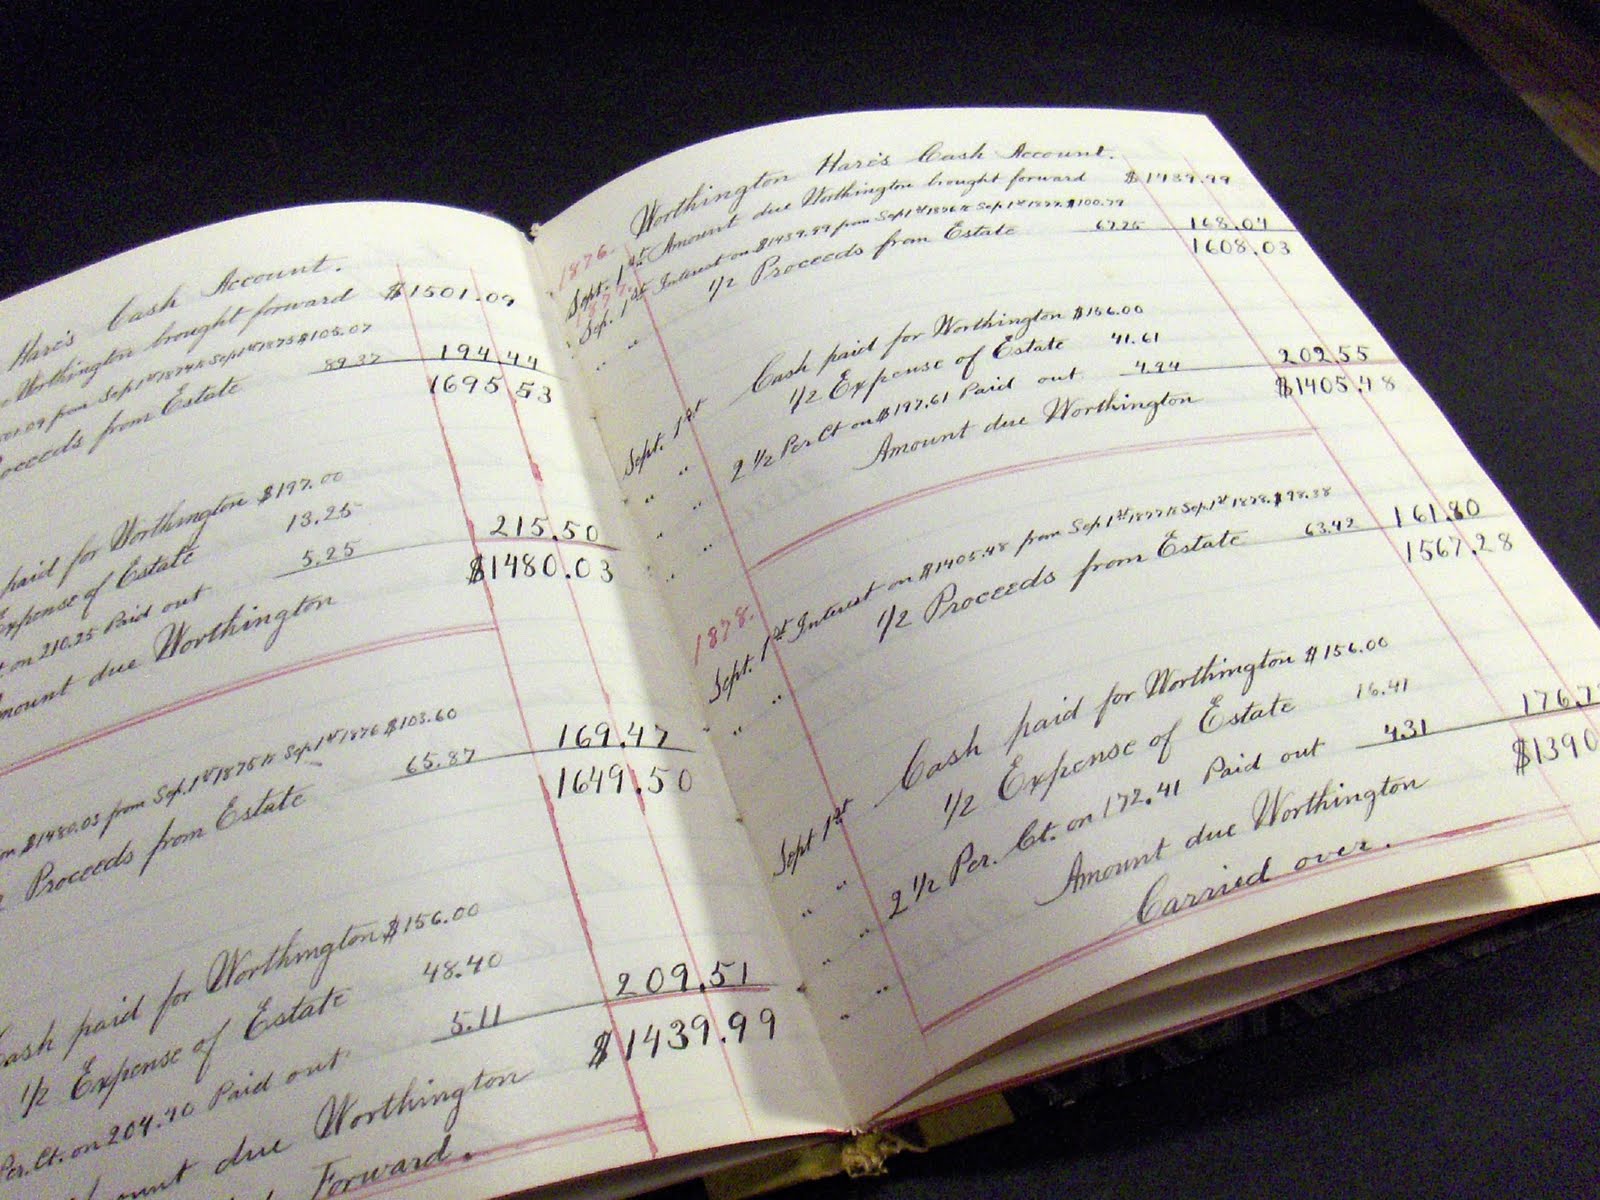 Hare's Cash Account.
Worthington brought forward $1501.09
from Sep. 1st 1874 to Sep 1st 1875 $105.07
Proceeds from Estate 89.37 194.44
1695.53
paid for Worthington $197.00
Expense of Estate 13.25
on 210.25 Paid out 5.25 215.50
Amount due Worthington $1480.03
on $1480.03 from Sep. 1st 1875 to Sep. 1st 1876 $103.60
Proceeds from Estate 65.87 169.47
1649.50
Cash paid for Worthington $156.00
1/2 Expense of Estate 48.40
Per. Ct. on 204.40 Paid out 5.11 209.51
Amount due Worthington $1439.99
Forward.
Worthington Hare's Cash Account.
1876.
Sept. 1st Amount due Worthington brought forward $1439.99
1877.
Sep. 1st Interest on $1439.99 from Sep 1st 1876 to Sep. 1st 1877 $100.79
" " 1/2 Proceeds from Estate 67.25 168.04
1608.03
Sept. 1st Cash paid for Worthington $156.00
" " 1/2 Expense of Estate 41.61
" " 2 1/2 Per Ct on $197.61 Paid out 4.94 202.55
" " Amount due Worthington $1405.48
1878.
Sept. 1st Interest on $1405.48 from Sep. 1st 1877 to Sep 1st 1878. $98.38
" " 1/2 Proceeds from Estate 63.42 161.80
1567.28
Sept 1st Cash paid for Worthington $156.00
" " 1/2 Expense of Estate 16.41
" " 2 1/2 Per. Ct. on 172.41 Paid out 4.31 176.7
" " Amount due Worthington $1390
Carried over.